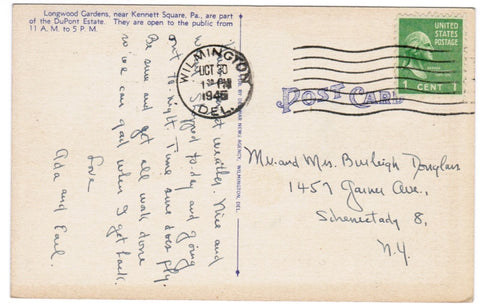 Longwood Gardens, near Kennett Square, Pa., are part
of the DuPont Estate. They are open to the public from
11 A. M. to 5 P. M.
weather. Nice and
to day and going
out to night. Time sure does fly.
Be sure and get all work done
so we can gad when I get back.
Love
Ada and Earl.
WILMINGTON
OCT 30
1945
DEL.
UNITED
STATES
POSTAGE
1 CENT 1
POST CARD
NEWS AGENCY, WILMINGTON, DEL.
Mr. and Mrs. Burleigh Douglass
1457 Garner Ave.,
Schenectady 8,
N.Y.